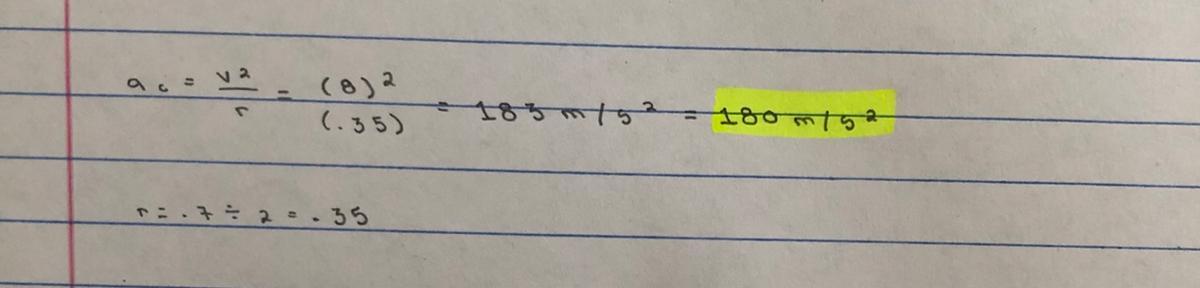 ac = v²/r = (8)²/(.35) = 183 m/s² = 180 m/s²
r = .7 ÷ 2 = .35